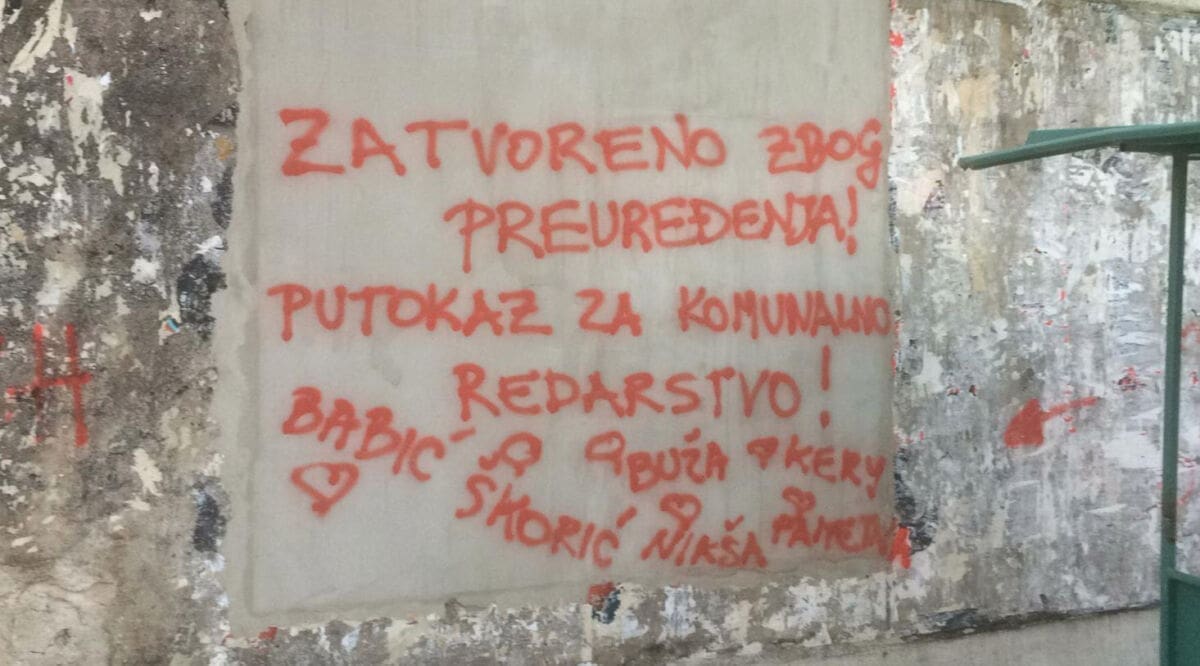 ZATVORENO ZBOG
PREUREĐENJA!
PUTOKAZ ZA KOMUNALNO
REDARSTVO!
BABIĆ BUŽA KERY
ŠKORIĆ NIAŠA
H